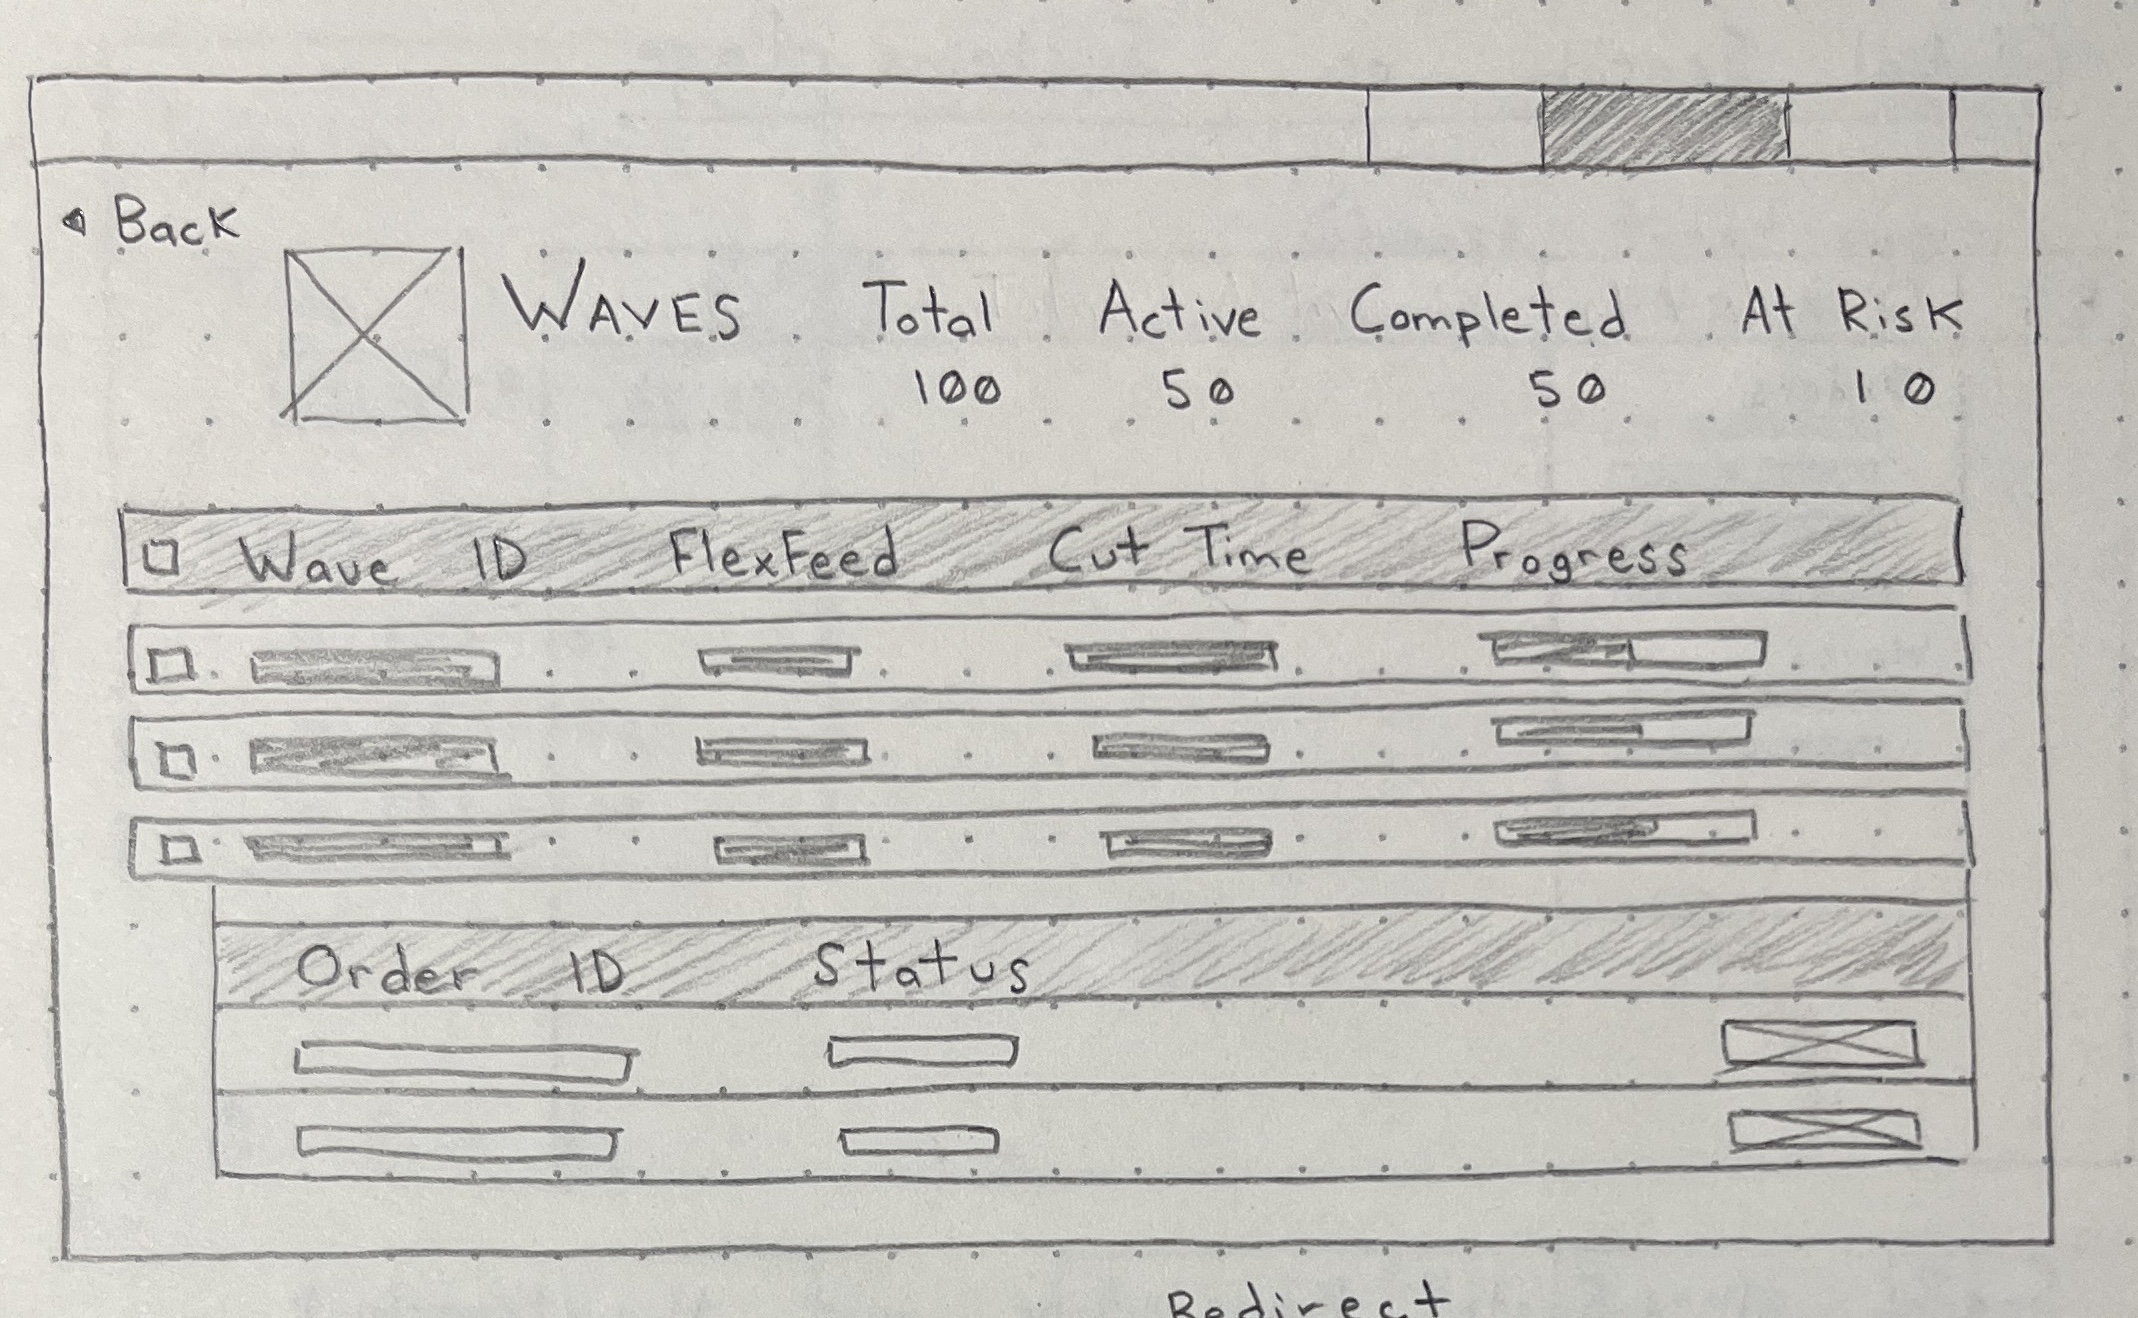 Back
WAVES Total Active Completed At Risk
100 50 50 10
Wave ID FlexFeed Cut Time Progress
Order ID Status
Redirect